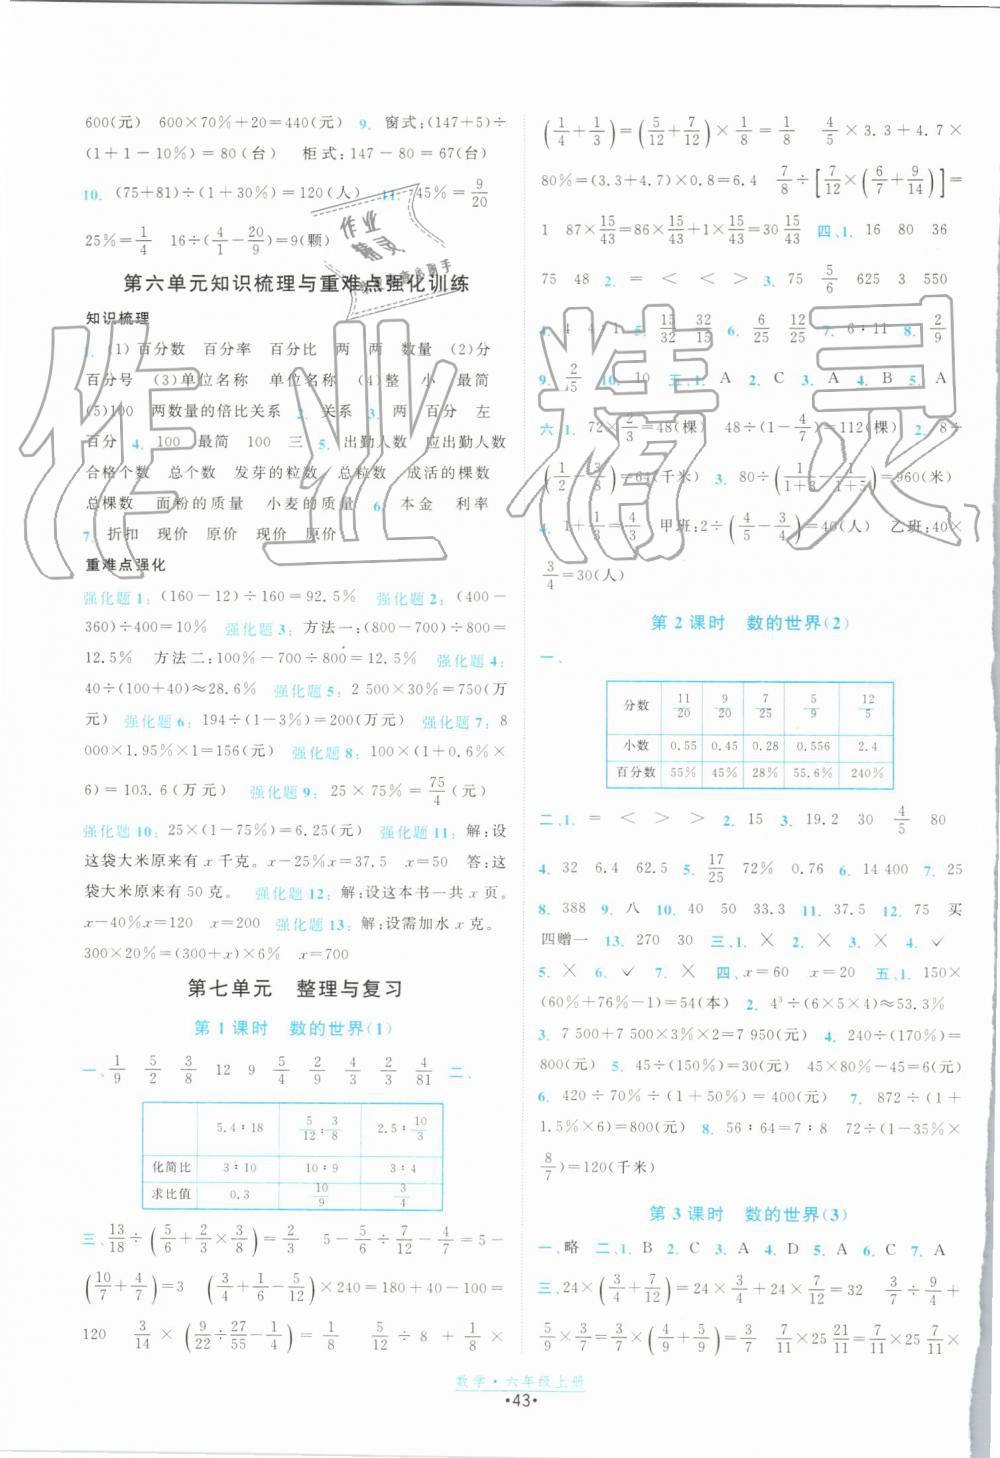 600(元)　600×70%+20=440(元)　9. 窗式:(147+5)÷
(1+1-10%)=80(台)　柜式:147-80=67(台)
10. (75+81)÷(1+30%)=120(人)　11. 45%=9/20
25%=1/4　16÷(1/4-20/9)=9(颗)
第六单元知识梳理与重难点强化训练
知识梳理
1. (1)百分数　百分率　百分比　两　两　数量　(2)分
百分号　(3)单位名称　单位名称　(4)整　小　最简
(5)100　两数量的倍比关系　2. 关系　3. 两　百分　左
百分　4. 100　最简　100　三　5. 出勤人数　应出勤人数
合格个数　总个数　发芽的粒数　总粒数　成活的棵数
总棵数　面粉的质量　小麦的质量　6. 本金　利率
7. 折扣　现价　原价　现价　原价
重难点强化
强化题 1: (160-12)÷160=92.5%　强化题 2: (400-
360)÷400=10%　强化题 3: 方法一:(800-700)÷800=
12.5%　方法二:100%-700÷800=12.5%　强化题 4:
40÷(100+40)≈28.6%　强化题 5: 2 500×30%=750(万
元)　强化题 6: 194÷(1-3%)=200(万元)　强化题 7: 8
000×1.95%×1=156(元)　强化题 8: 100×(1+0.6%×
6)=103.6(万元)　强化题 9: 25×75%=75/4(元)
强化题 10: 25×(1-75%)=6.25(元)　强化题 11: 解:设
这袋大米原来有 x 千克。x-25%x=37.5　x=50　答:这
袋大米原来有 50 克。　强化题 12: 解:设这本书一共 x 页。
x-40%x=120　x=200　强化题 13: 解:设需加水 x 克。
300×20%=(300+x)×6%　x=700
第七单元　整理与复习
第 1 课时　数的世界(1)
一、1/9　5/2　3/8　12　9　5/4　2/9　4/3　2/4　4/81　二、
5.4∶18　5/12∶3/8　2.5∶10/3
化简比　3∶10　10∶9　3∶4
求比值　0.3　10/9　3/4
三、13/18÷(5/6+2/3×3/4)=2/3　5-5/7÷7/12-4/7=5-
(10/7+4/7)=3　(3/4+1/6-2/5)×240=180+40-100=
120　3/14×(9/22÷27/55-1/4)=1/8　5/12÷8+1/8×
(1/4+1/3)=(5/12+7/12)×1/8=1/8　4/5×3.3+4.7×
80%=(3.3+4.7)×0.8=6.4　7/8÷[7/12×(6/7+9/14)]=
1　87×15/43=86×15/43+1×15/43=30 15/43　四、1. 16　80　36
75　48　2. =　<　<　>　3. 75　5/6　625　18
4. 4　4∶1　5. 15/32　32/15　6. 6/25　12/25　7. 6∶11　8. 2/9
9. 2/5　10. 10　五、1. A　2. C　3. A　4. B　5. A
六、1. 72×2/3=48(棵)　48÷(1-4/7)=112(棵)　2. 8÷
(1/2-3/8)=64(千米)　3. 80÷(1/(1+3)-1/(1+5))=960(米)
4. 1+1/3=4/3　甲班:2÷(4/5-3/4)=40(人)　乙班:40×
3/4=30(人)
第 2 课时　数的世界(2)
一、
分数　11/20　9/20　7/25　5/9　12/5
小数　0.55　0.45　0.28　0.556　2.4
百分数　55%　45%　28%　55.6%　240%
二、1. =　<　>　>　2. 15　3. 19.2　30　4/5　80
4. 32　6.4　62.5　5. 17/25　72%　0.76　6. 14 400　7. 25
8. 388　9. 八　10. 40　50　33.3　11. 37.5　12. 75　买
四赠一　13. 270　30　三、1. ×　2. ×　3. ×　4. ✓
5. ×　6. ✓　7. ×　四、x=60　x=25　五、1. 150×
(60%+76%-1)=54(本)　2. 4³÷(6×5×4)≈53.3%
3. 7 500+7500×3%×2=7 950(元)　4. 240÷(170%)=
800(元)　5. 45÷(150%)=30(元)　45×80%-45=6(元)
6. 420÷70%÷(1+50%)=400(元)　7. 872÷(1+
1.5%×6)=800(元)　8. 56∶64=7∶8　72÷(1-35%×
8/7)=120(千米)
第 3 课时　数的世界(3)
一、略　二、1. B　2. C　3. A　4. D　5. A　6. C　7. A
三、24×(3/4+7/12)=24×3/4+24×7/12=32　3/7÷9/4+
5/9×3/7=3/7×(4/9+5/9)=3/7　7/11×25 21/11=7/11×25 7/11×
数学·六年级上册
·43·
作业精灵
作业
精灵